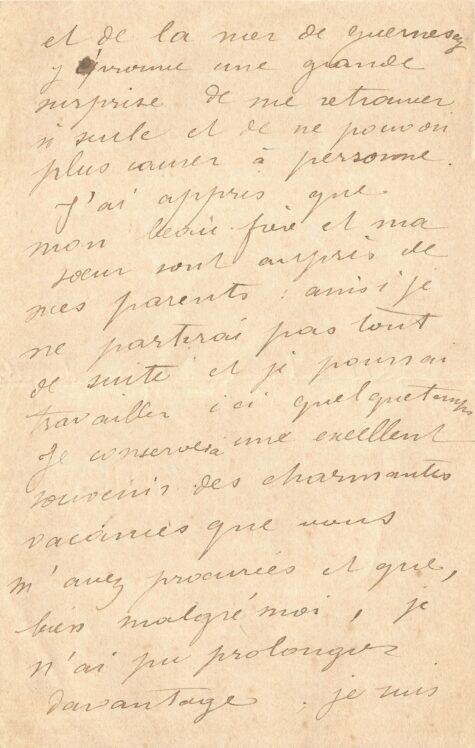 et de la mer de guernesey
j'éprouve une grande
surprise de me retrouver
si seule et de ne pouvoir
plus causer à personne.
J'ai appris que
mon beau frère et ma
sœur sont auprès de
mes parents : ainsi je
ne partirai pas tout
de suite et je pourrai
travailler ici quelque temps
Je conserverai une excellent
souvenir des charmantes
vacances que vous
m'avez procurées et que,
bien malgré moi, je
n'ai pu prolonger
davantage. je suis